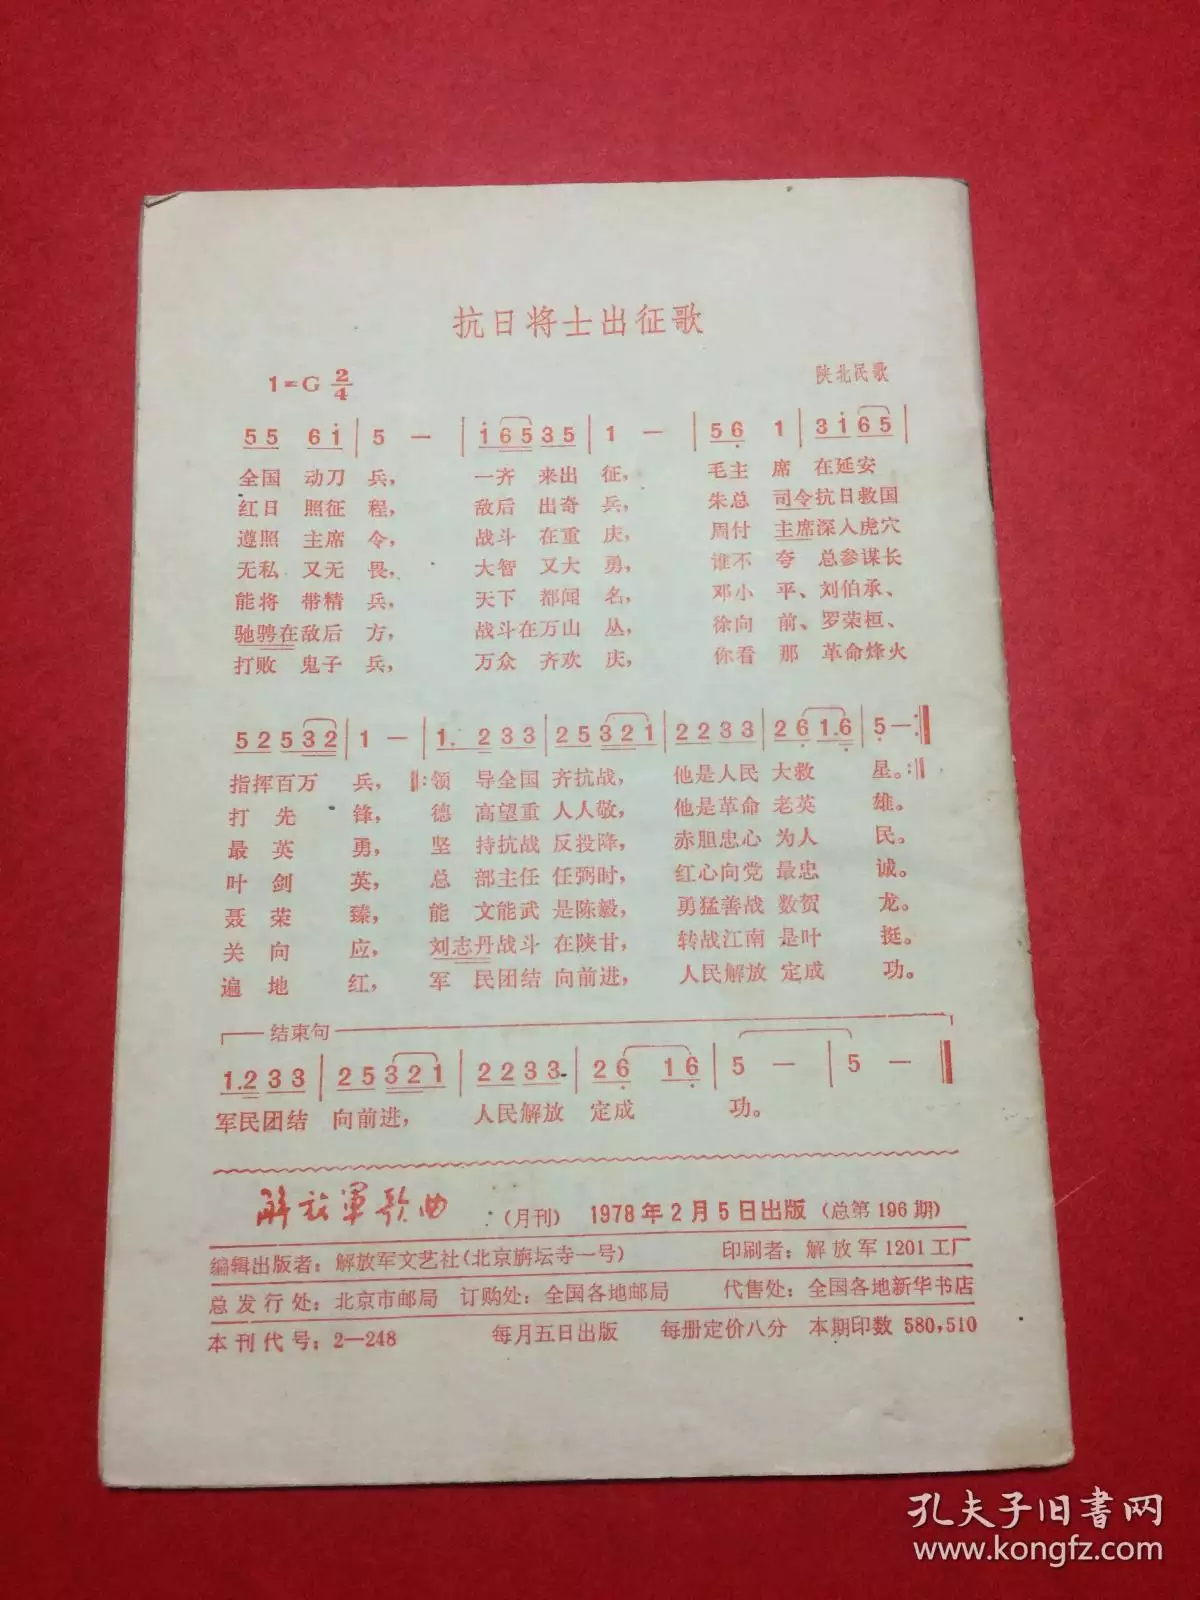 抗日将士出征歌
1=G 2/4
陕北民歌
55 61 | 5 — | 16535 | 1 — | 56 1 | 3165 |
全国 动刀 兵， 一齐 来出 征， 毛主 席 在延安
红日 照征 程， 敌后 出奇 兵， 朱总 司令抗日救国
遵照 主席 令， 战斗 在重 庆， 周付 主席深入虎穴
无私 又无 畏， 大智 又大 勇， 谁不 夸 总参谋长
能将 带精 兵， 天下 都闻 名， 邓小 平、刘伯承、
驰骋在敌后 方， 战斗在万山 丛， 徐向 前、罗荣桓、
打败 鬼子 兵， 万众 齐欢 庆， 你看 那 革命烽火
52532 | 1 — | 1. 233 | 25321 | 2233 | 261.6 | 5 — :‖
指挥百万 兵，‖:领 导全国 齐抗战， 他是人民 大救 星。:‖
打 先 锋， 德 高望重 人人敬， 他是革命 老英 雄。
最 英 勇， 坚 持抗战 反投降， 赤胆忠心 为人 民。
叶 剑 英， 总 部主任 任弼时， 红心向党 最忠 诚。
聂 荣 臻， 能 文能武 是陈毅， 勇猛善战 数贺 龙。
关 向 应， 刘志丹战斗 在陕甘， 转战江南 是叶 挺。
遍 地 红， 军 民团结 向前进， 人民解放 定成 功。
结束句
1.233 | 25321 | 2233 | 26 16 | 5 — | 5 — ‖
军民团结 向前进， 人民解放 定成 功。
解放军歌曲 （月刊） 1978年2月5日出版 （总第196期）
编辑出版者：解放军文艺社（北京旃坛寺一号） 印刷者：解放军1201工厂
总发行处：北京市邮局 订购处：全国各地邮局 代售处：全国各地新华书店
本刊代号：2—248 每月五日出版 每册定价八分 本期印数 580,510
孔夫子旧书网
www.kongfz.com